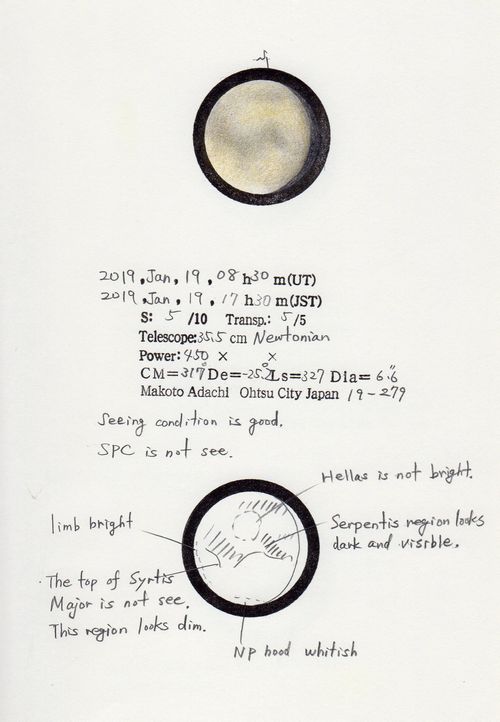 2019, Jan, 19, 08 h 30 m (UT)
2019, Jan, 19, 17 h 30 m (JST)
S: 5 /10 Transp.: 5 /5
Telescope: 35.5 cm Newtonian
Power: 450 × ×
CM=317° De=-25.2° Ls=327 Dia= 6.6"
Makoto Adachi Ohtsu City Japan 19-279
Seeing condition is good.
SPC is not see.
Hellas is not bright.
limb bright
Serpentis region looks
dark and visible.
The top of Syrtis
Major is not see.
This region looks dim.
Np hood whitish